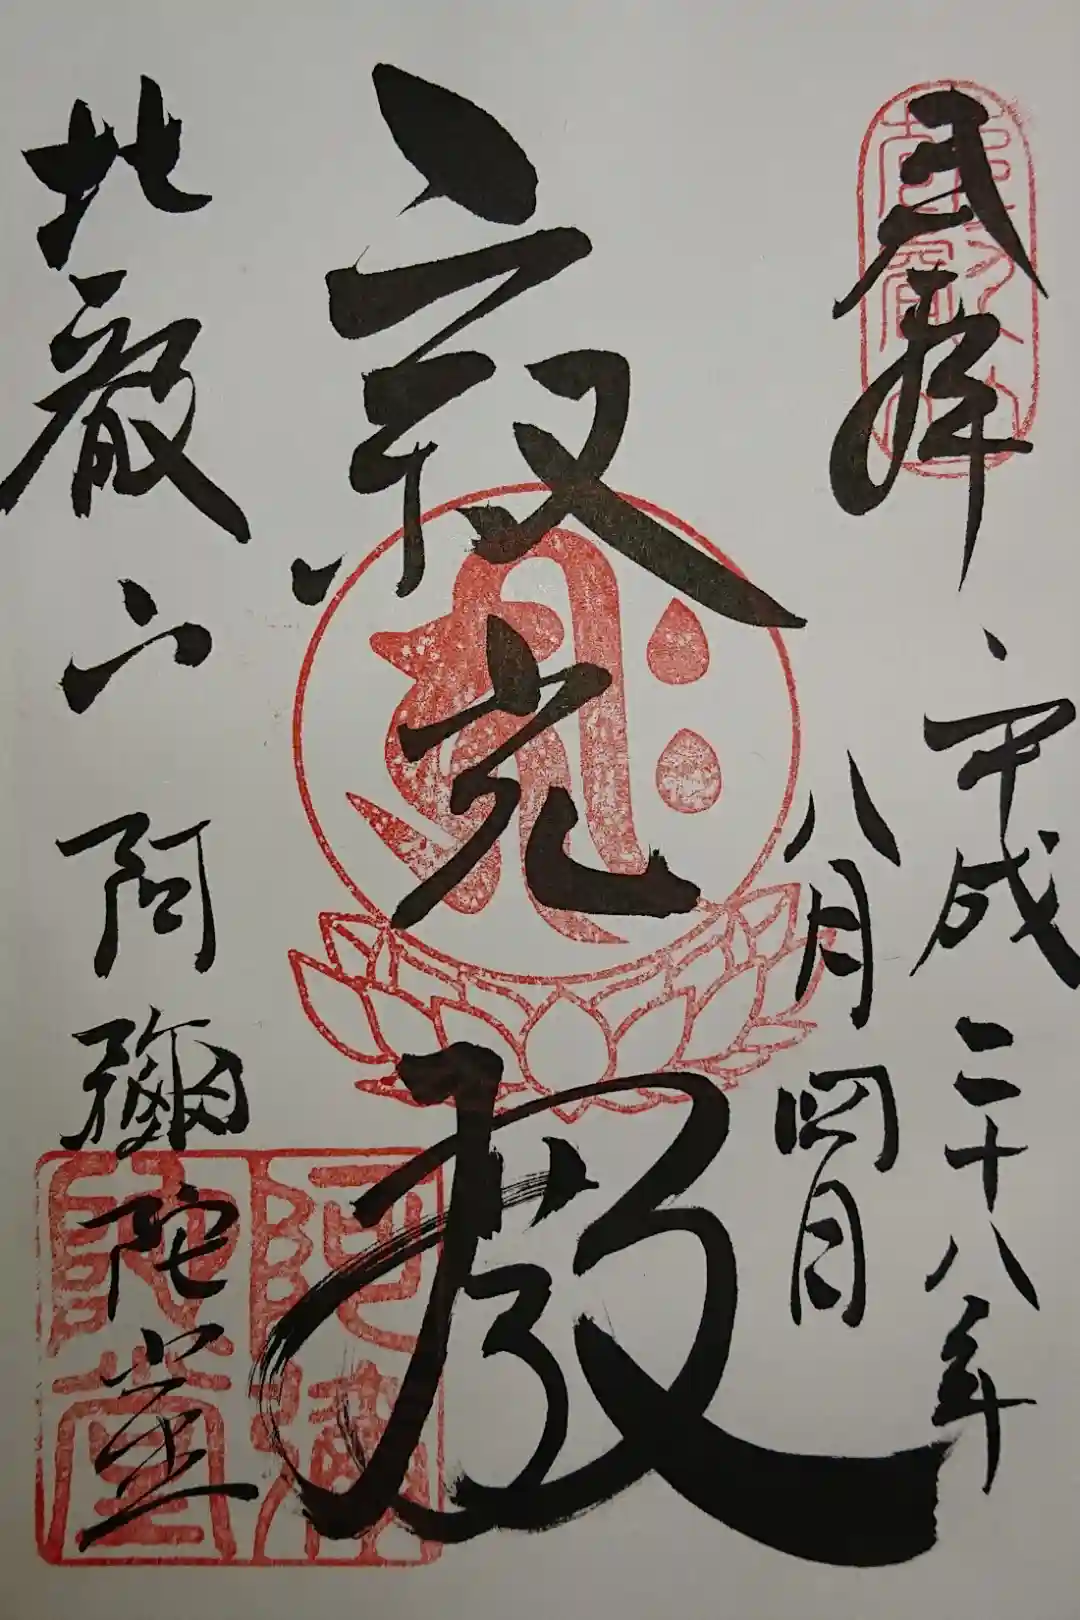 奉拝
平成二十八年
八月四日
寂光殿
比叡山
阿彌陀堂
阿彌陀堂